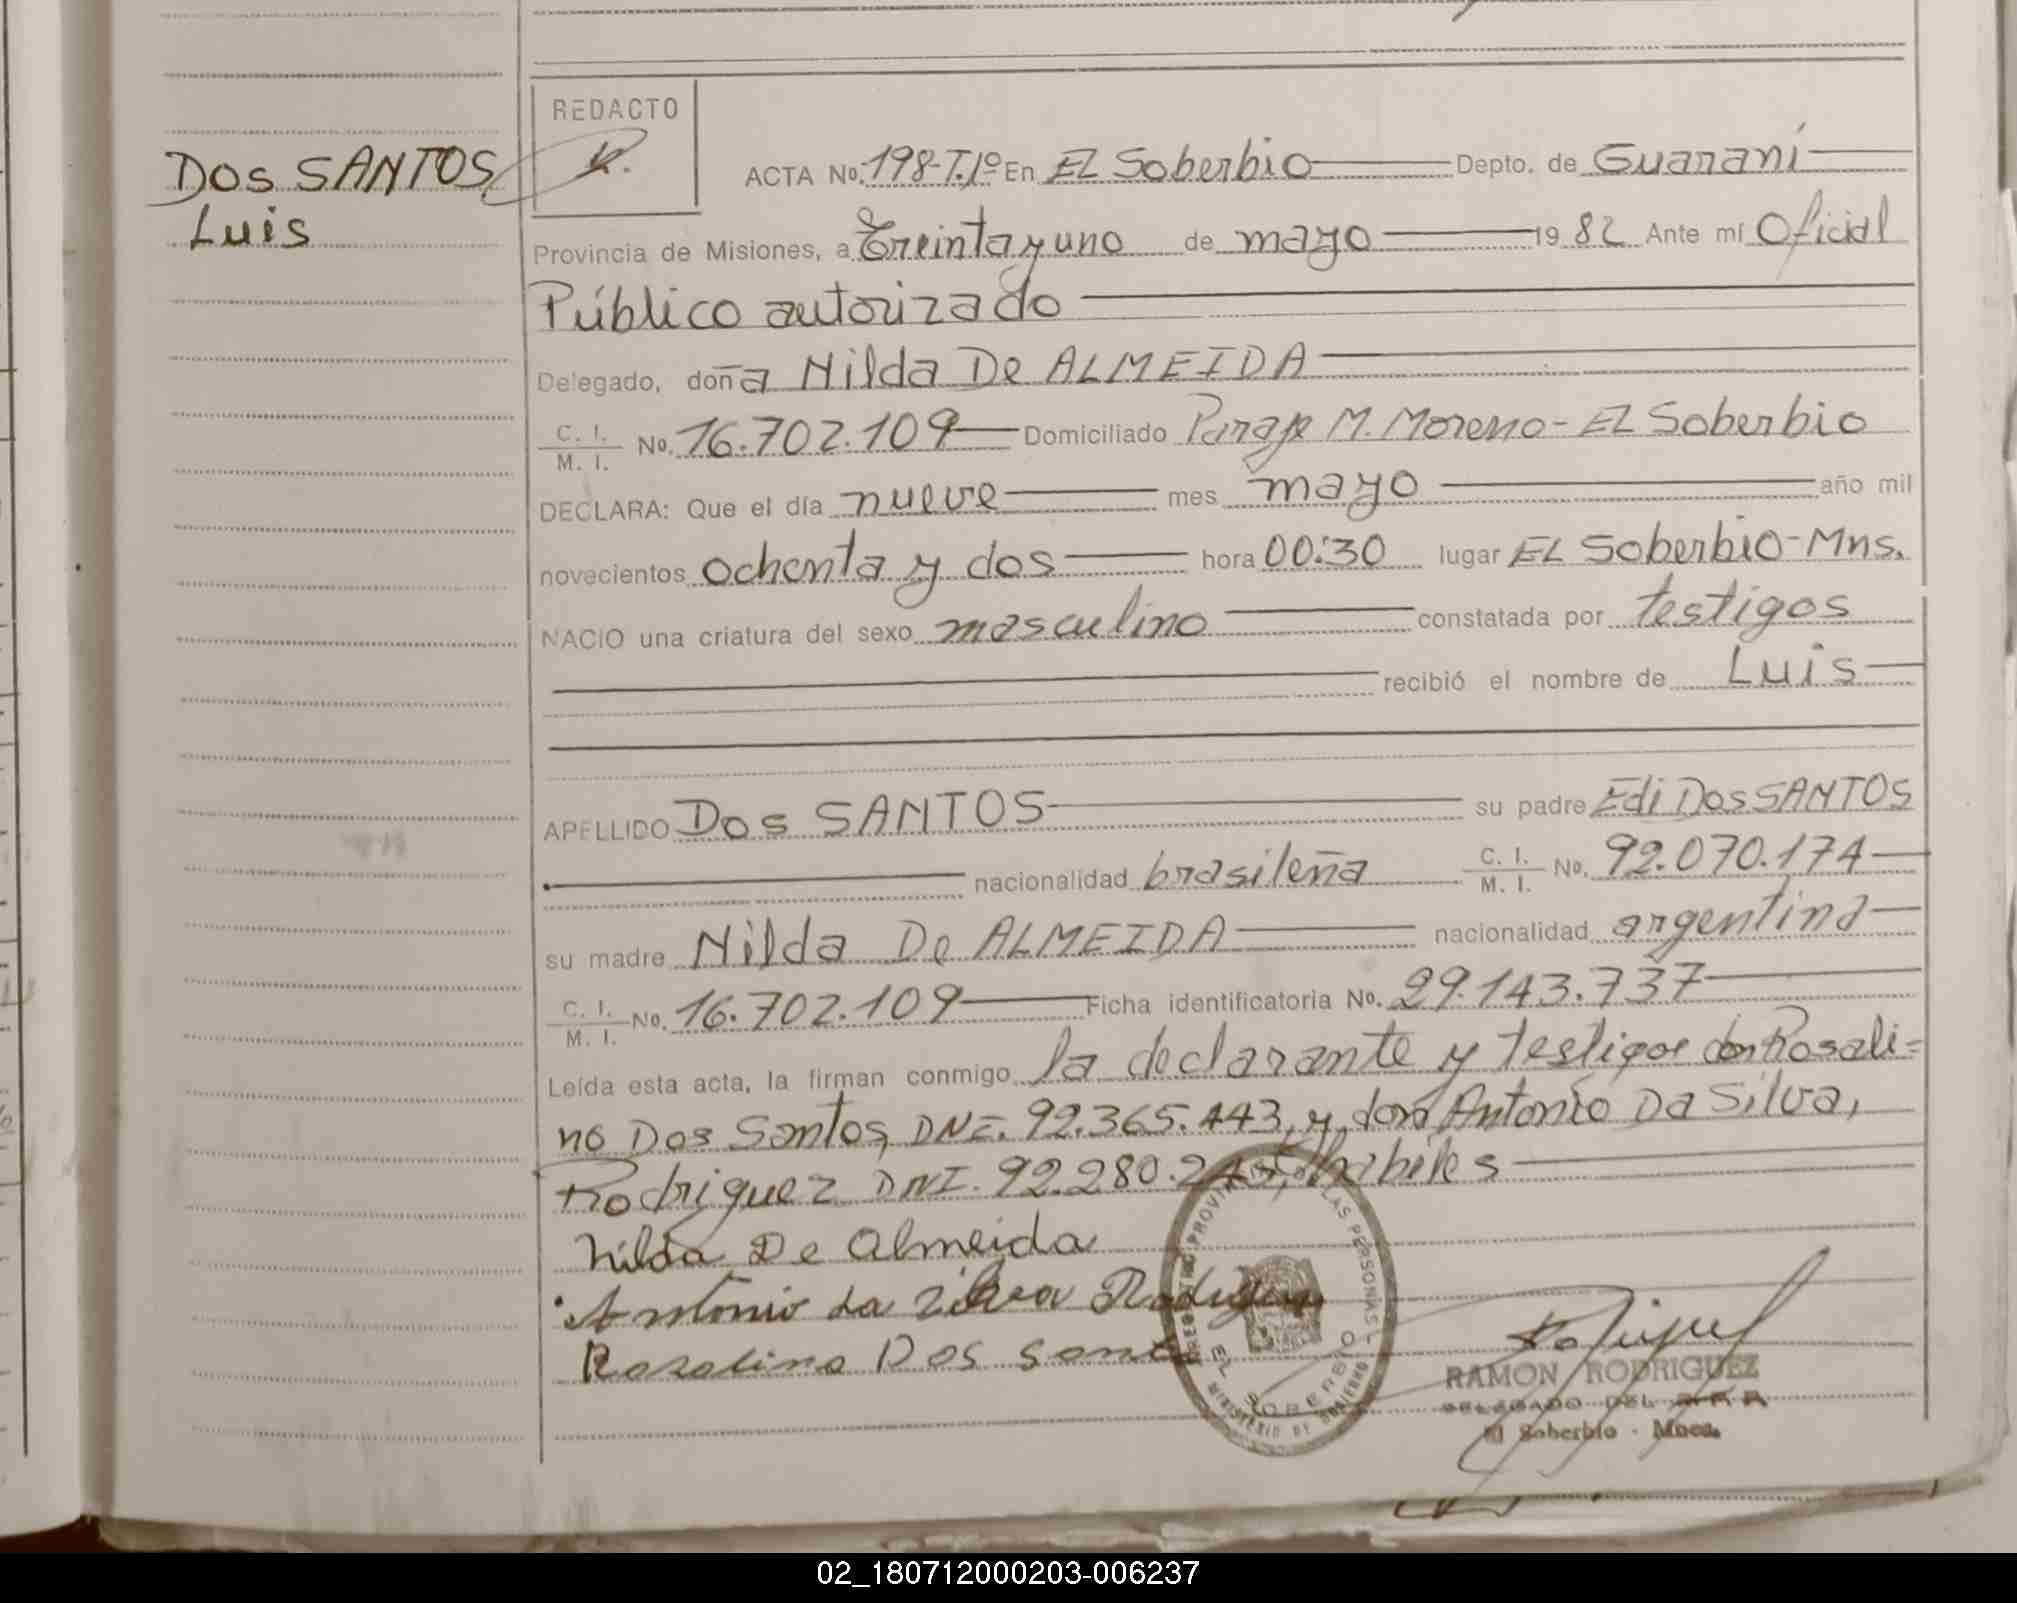 REDACTO
R.
Dos SANTOS,
Luis
ACTA No. 198-T.1º En EL Soberbio Depto. de Guaraní
Provincia de Misiones, a Treinta y uno de mayo 1982 Ante mí Oficial
Público autorizado
Delegado, doña Nilda De ALMEIDA
C. I. / M. I. No. 16.702.109 Domiciliado Paraje M. Moreno - EL Soberbio
DECLARA: Que el día nueve mes mayo año mil
novecientos ochenta y dos hora 00:30 lugar EL Soberbio-Mns.
NACIO una criatura del sexo masculino constatada por testigos
recibió el nombre de Luis
APELLIDO Dos SANTOS su padre Edi Dos SANTOS
nacionalidad brasileña C. I. / M. I. No. 92.070.174
su madre Nilda De ALMEIDA nacionalidad argentina
C. I. / M. I. No. 16.702.109 Ficha identificatoria No. 29.143.737
Leída esta acta, la firman conmigo la declarante y testigos don Rosali=
no Dos Santos, DNI. 92.365.443, y don Antonio Da Silva,
Rodriguez DNI. 92.280. hábiles
Nilda De Almeida
Antonio da Silva Rodriguez
Rosalino Dos Santos
REGISTRO PROVINCIAL DE LAS PERSONAS
EL SOBERBIO
MINISTERIO DE GOBIERNO
RAMON RODRIGUEZ
DELEGADO DEL R P P
El Soberbio - Mnes.
02_180712000203-006237